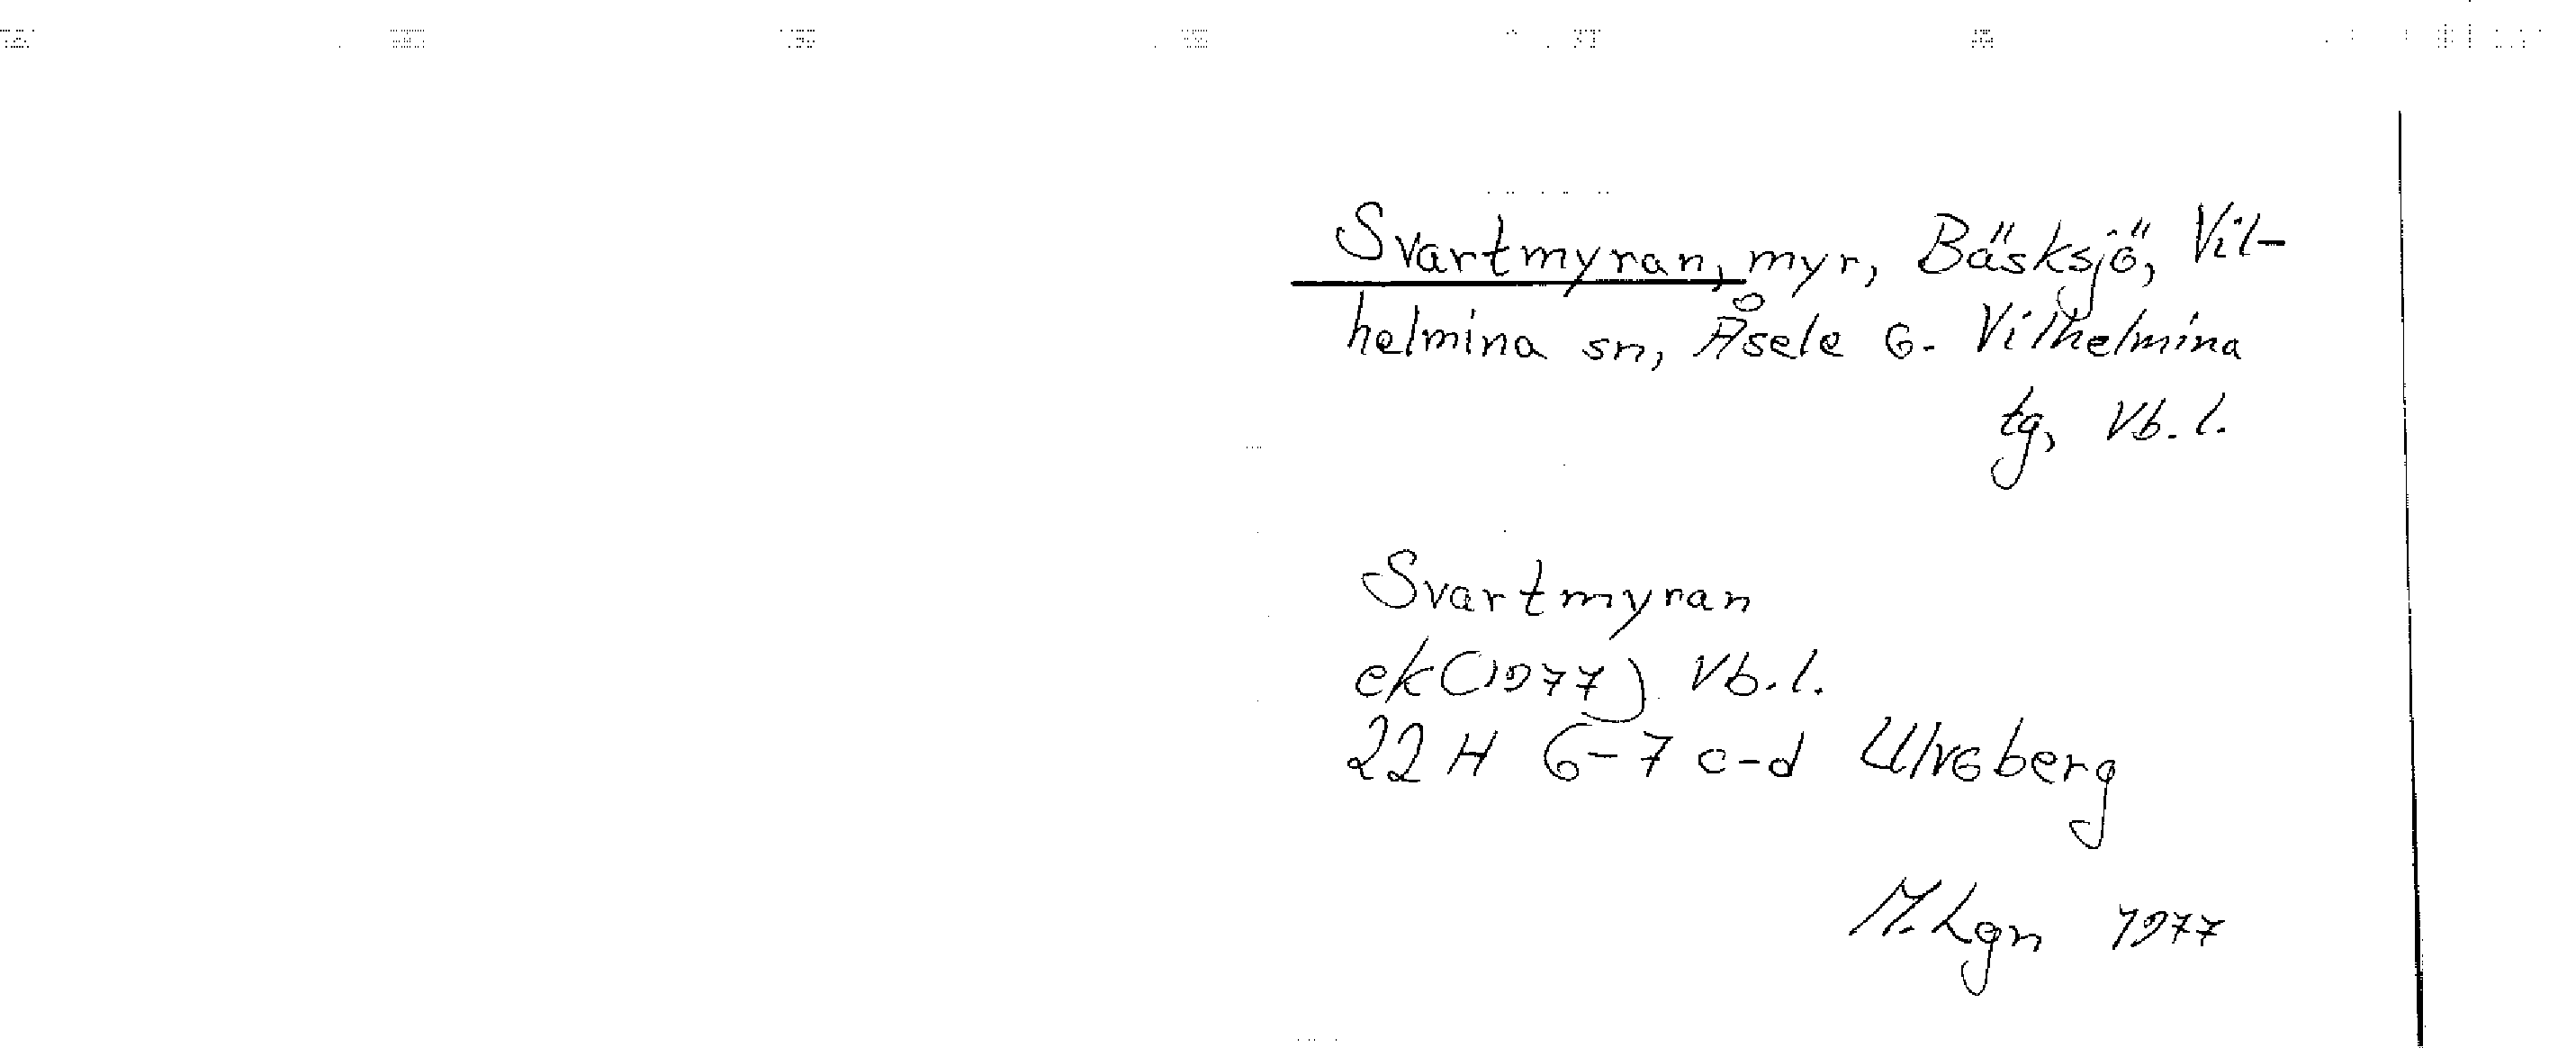 Svartmyran, myr, Bäsksjö, Vil-
helmina sn, Åsele G. Vilhelmina
tg, Vb. l.
Svartmyran
ek (1977) Vb. l.
22 H 6-7 c-d Ulvoberg
M. Lgn 1977